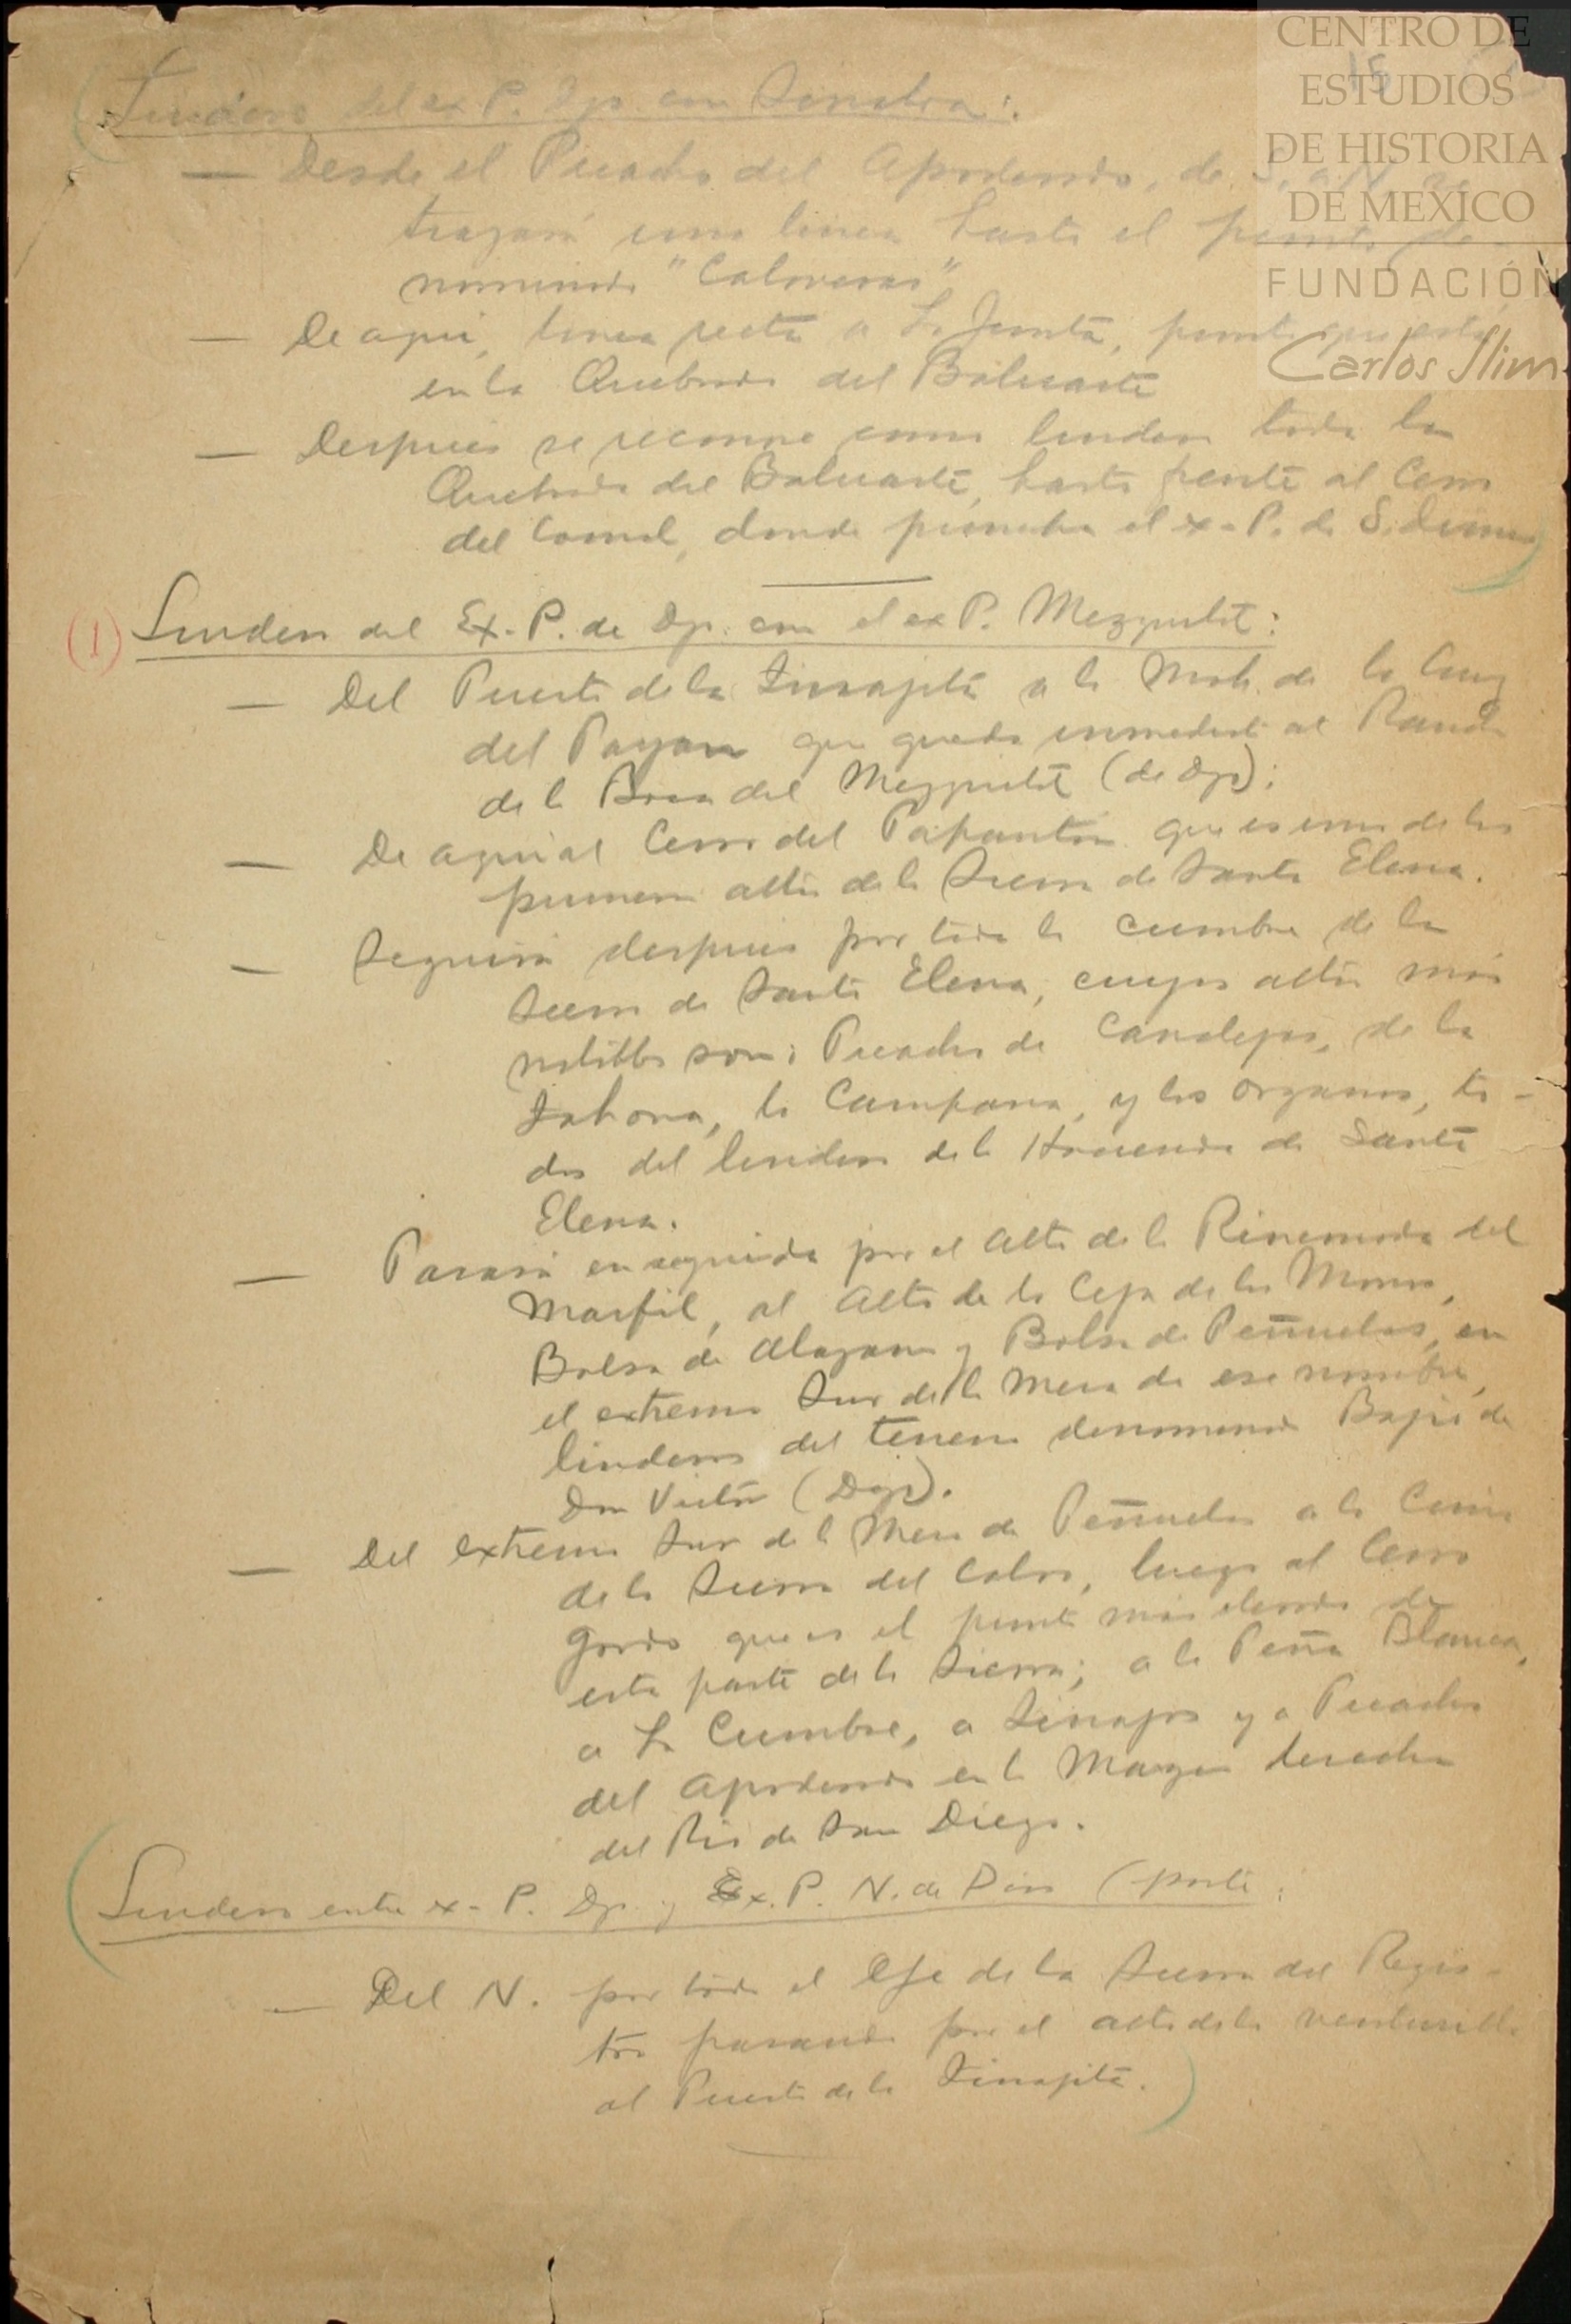 CENTRO DE
ESTUDIOS
DE HISTORIA
DE MEXICO
FUNDACIÓN
Carlos Slim
15
Lindero del ex P. Dgo. con Sinaloa:
— Desde el Picacho del Apoderado, de S. a N. se
trazará una linea hasta el punto de-
nominado "Calaveras"
— De aqui, linea recta a La Junta, punto que está
en la Quebrada del Baluarte
— Despues se reconoce como lindero toda la
Quebrada del Baluarte, hasta frente al Cerro
del Comal, donde principia el ex-P. de S. Dimas
(1) Lindero del Ex-P. de Dgo. con el ex P. Mezquital:
— Del Puerto de la Tinajita a la Mesa de la Cruz
del Payan que queda inmediato al Rancho
de la Boca del Mezquital (de Dgo):
— De aqui al Cerro del Papantón que es uno de los
primeros altos de la Sierra de Santa Elena.
— Seguirá despues por toda la cumbre de la
Sierra de Santa Elena, cuyos altos más
notables son: Picachos de Canalejas, de la
Tahona, la Campana, y los Organos, to-
dos del lindero de la Hacienda de Santa
Elena.
— Pasará en seguida por el Alto de la Rinconada del
Marfil, al Alto de la Ceja de los Monos,
Bolsa de Alazanes y Bolsa de Peñuelas, en
el extremo Sur de la Mesa de ese nombre,
linderos del terreno denominado Bajío de
Don Victor (Dgo).
— Del extremo Sur de la Mesa de Peñuelas a la Cima
de la Sierra del Calvo, luego al Cerro
Gordo que es el punto más elevado de
esta parte de la Sierra; a la Peña Blanca,
a La Cumbre, a Tinajas y a Picacho
del Apoderado en la Margen derecha
del Rio de San Diego.
Lindero entre ex-P. Dgo. y Ex. P. N. de Dios (parte:
— Del N. por todo el Eje de la Sierra del Regis-
tro pasando por el alto de la
al Puerto de la Tinajita.)